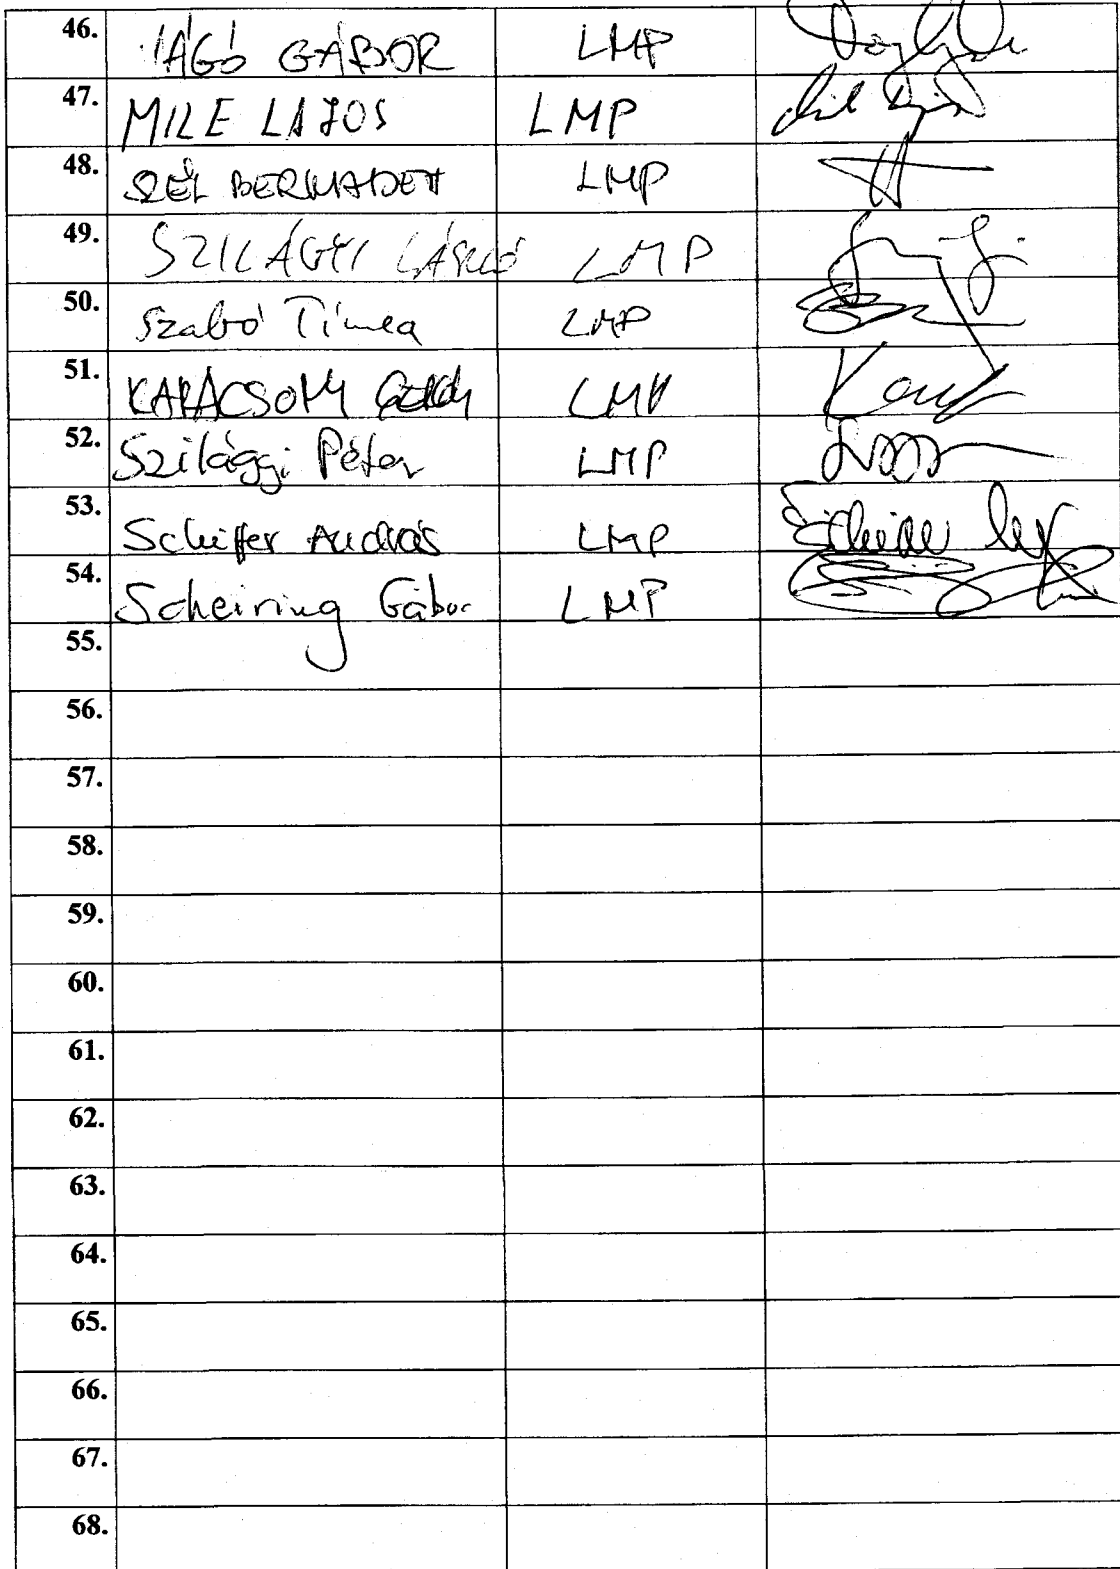 46. VÁGÓ GÁBOR LMP
47. MILE LAJOS LMP
48. SZÉL BERNADETT LMP
49. SZILÁGYI LÁSZLÓ LMP
50. Szabó Tímea LMP
51. KARÁCSONY LMP
52. Szilágyi Péter LMP
53. Schiffer András LMP
54. Scheiring Gábor LMP
55.
56.
57.
58.
59.
60.
61.
62.
63.
64.
65.
66.
67.
68.